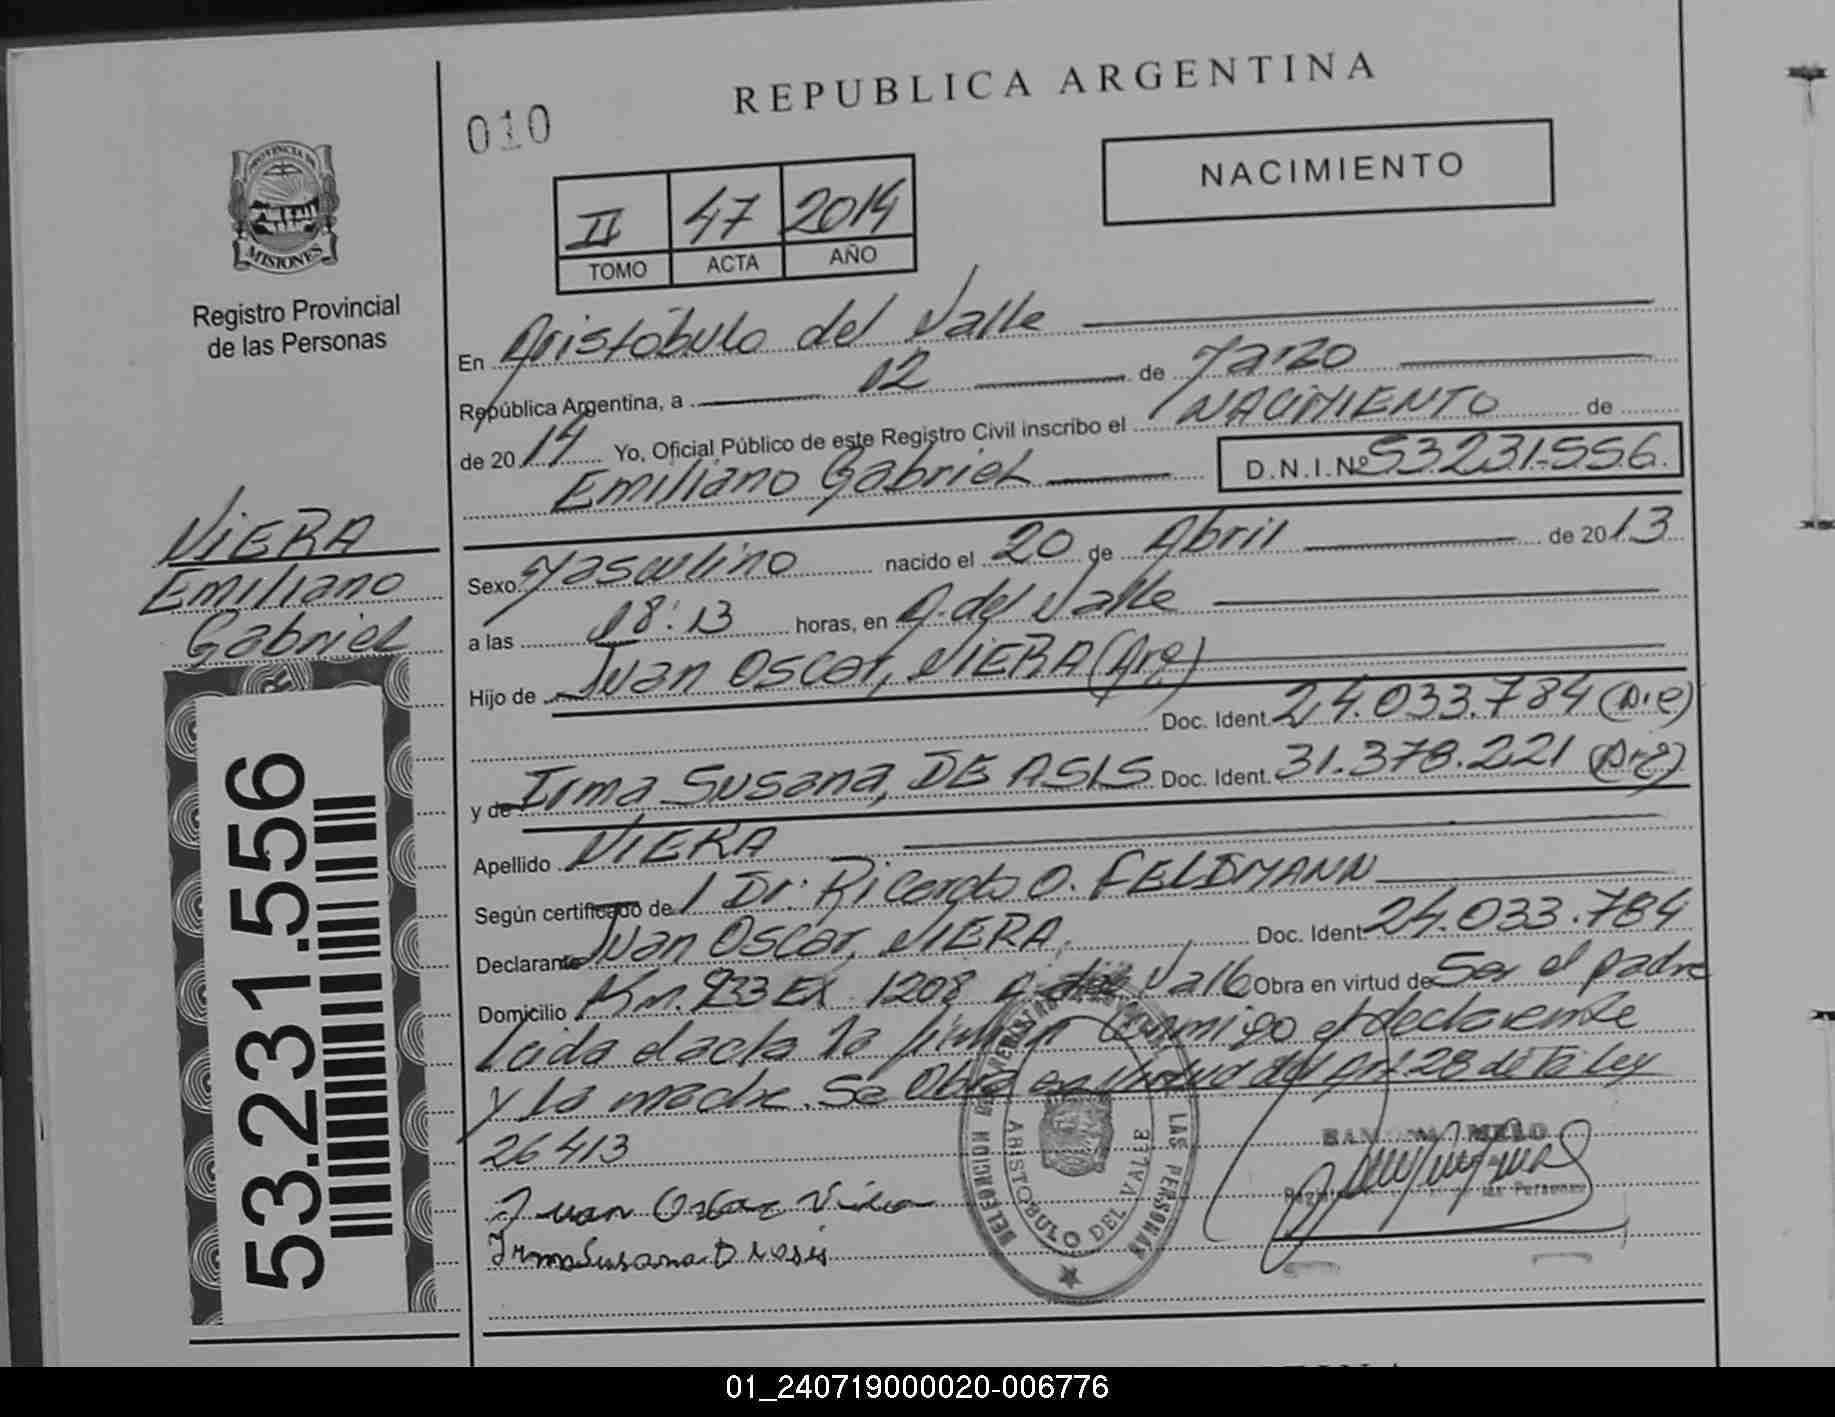 010
REPUBLICA ARGENTINA
NACIMIENTO
II 47 2014
TOMO ACTA AÑO
PROVINCIA DE
MISIONES
Registro Provincial
de las Personas
En Aristóbulo del Valle
República Argentina, a 12 de Marzo
de 2014 Yo, Oficial Público de este Registro Civil inscribo el NACIMIENTO de
Emiliano Gabriel D.N.I.Nº 53.231.556.
VIERA
Emiliano
Gabriel
53.231.556
Sexo Masculino nacido el 20 de Abril de 2013
a las 18:13 horas, en A. del Valle
Hijo de Juan Oscar, VIERA (Arg)
Doc. Ident. 24.033.784 (Arg)
y de Irma Susana, DE ASIS Doc. Ident. 31.378.221 (Arg)
Apellido VIERA
Según certificado de Dr: Ricardo O. FELDMANN
Declarante Juan Oscar, VIERA, Doc. Ident. 24.033.784
Domicilio Km. 933 EX 1208 A. del Valle Obra en virtud de Ser el padre
Leida el acta la firman conmigo el declarante
y la madre. Se Obra en virtud del Art 28 de la Ley
26413
Juan Oscar Viera
Irma Susana D Asis
DELEGACION REGISTRO LAS PERSONAS
ARISTOBULO DEL VALLE
MELO
las Personas
01_240719000020-006776